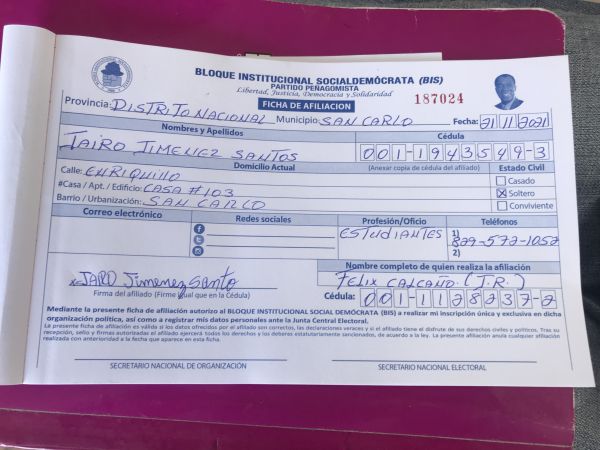 BLOQUE INSTITUCIONAL SOCIALDEMÓCRATA (BIS)
PARTIDO PEÑAGOMISTA
Libertad, Justicia, Democracia y Solidaridad
FICHA DE AFILIACION
187024
Provincia: DISTRITO NACIONAL Municipio: SAN CARLO Fecha: 21 11 2021
Nombres y Apellidos Cédula
JAIRO JIMENEZ SANTOS 001-1943549-3
Domicilio Actual (Anexar copia de cédula del afiliado) Estado Civil
Calle: ENRIQUILLO Casado
#Casa / Apt. / Edificio: CASA #103 Soltero
Barrio / Urbanización: SAN CARLO Conviviente
Correo electrónico Redes sociales Profesión/Oficio Teléfonos
ESTUDIANTES 1) 829-572-1052
2)
Nombre completo de quien realiza la afiliación
x JARD Jimenez Santo FELIX CALCAÑO (J.R.)
Firma del afiliado (Firme igual que en la Cédula) Cédula: 001-1128237-2
Mediante la presente ficha de afiliación autorizo al BLOQUE INSTITUCIONAL SOCIAL DEMÓCRATA (BIS) a realizar mi inscripción única y exclusiva en dicha
organización política, así como a registrar mis datos personales ante la Junta Central Electoral.
La presente ficha de afiliación es válida si los datos ofrecidos por el afiliado son correctos, las declaraciones veraces y si el afiliado tiene el disfrute de sus derechos civiles y políticos. Tras su
recepción, sello y firmas autorizadas el afiliado ejercerá todos los derechos y los deberes estatutariamente sancionados, de acuerdo a la ley. La presente afiliación anula cualquier afiliación
realizada con anterioridad a la fecha que aparece en esta ficha.
SECRETARIO NACIONAL DE ORGANIZACIÓN SECRETARIO NACIONAL ELECTORAL